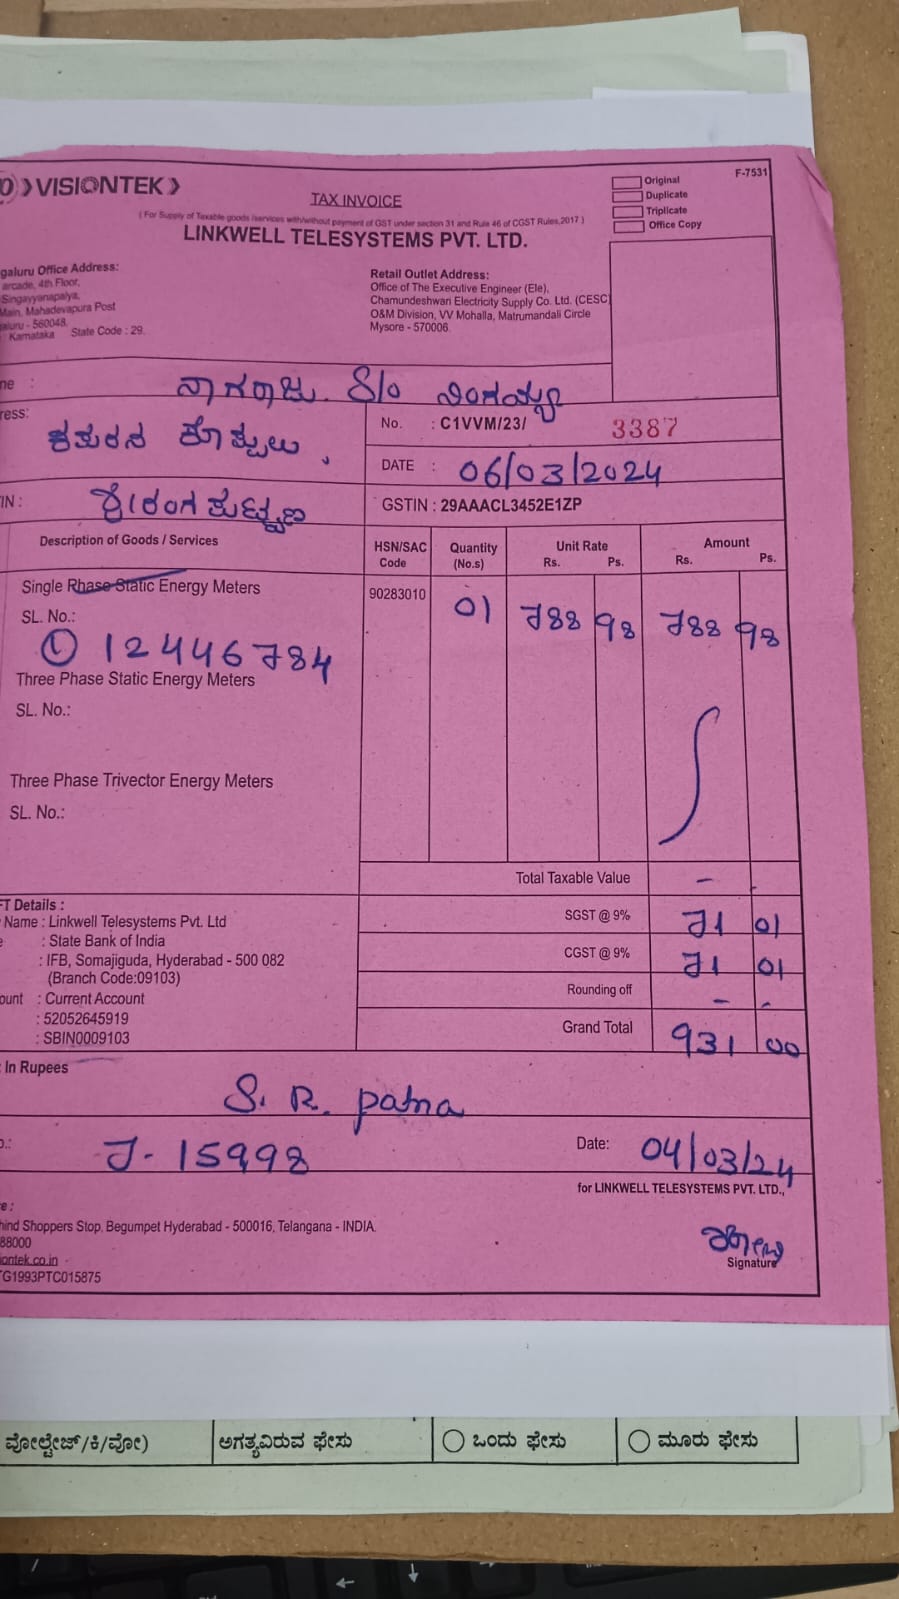 VISIONTEK
TAX INVOICE
( For Supply of Taxable goods /services with/without payment of GST under section 31 and Rule 46 of CGST Rules,2017 )
LINKWELL TELESYSTEMS PVT. LTD.
Original
Duplicate
Triplicate
Office Copy
F-7531
galuru Office Address:
arcade, 4th Floor,
Singayyanapalya,
Main, Mahadevapura Post
aluru - 560048.
Karnataka State Code : 29.
Retail Outlet Address:
Office of The Executive Engineer (Ele),
Chamundeshwari Electricity Supply Co. Ltd. (CESC)
O&M Division, VV Mohalla, Matrumandali Circle
Mysore - 570006.
me : ನಾಗರಾಜು S/o ನಿಂಗಯ್ಯ
ress:
No. : C1VVM/23/ 3387
DATE : 06/03/2024
IN : ಶ್ರೀರಂಗಪಟ್ಟಣ
GSTIN : 29AAACL3452E1ZP
Description of Goods / Services
HSN/SAC Code
Quantity (No.s)
Unit Rate
Rs. Ps.
Amount
Rs. Ps.
Single Phase Static Energy Meters
90283010 01 788 98 788 98
SL. No.:
① 12446784
Three Phase Static Energy Meters
SL. No.:
Three Phase Trivector Energy Meters
SL. No.:
Total Taxable Value -
FT Details :
Name : Linkwell Telesystems Pvt. Ltd
: State Bank of India
: IFB, Somajiguda, Hyderabad - 500 082
(Branch Code:09103)
ount : Current Account
: 52052645919
: SBIN0009103
SGST @ 9% 71 01
CGST @ 9% 71 01
Rounding off - -
Grand Total 931 00
In Rupees
S. R. patna
o.: J- 15998
Date: 04/03/24
for LINKWELL TELESYSTEMS PVT. LTD.,
e :
hind Shoppers Stop, Begumpet Hyderabad - 500016, Telangana - INDIA.
88000
iontek.co.in
TG1993PTC015875
Signature
ವೋಲ್ಟೇಜ್/ಕಿ/ವೋ) ಅಗತ್ಯವಿರುವ ಫೇಸು ಒಂದು ಫೇಸು ಮೂರು ಫೇಸು